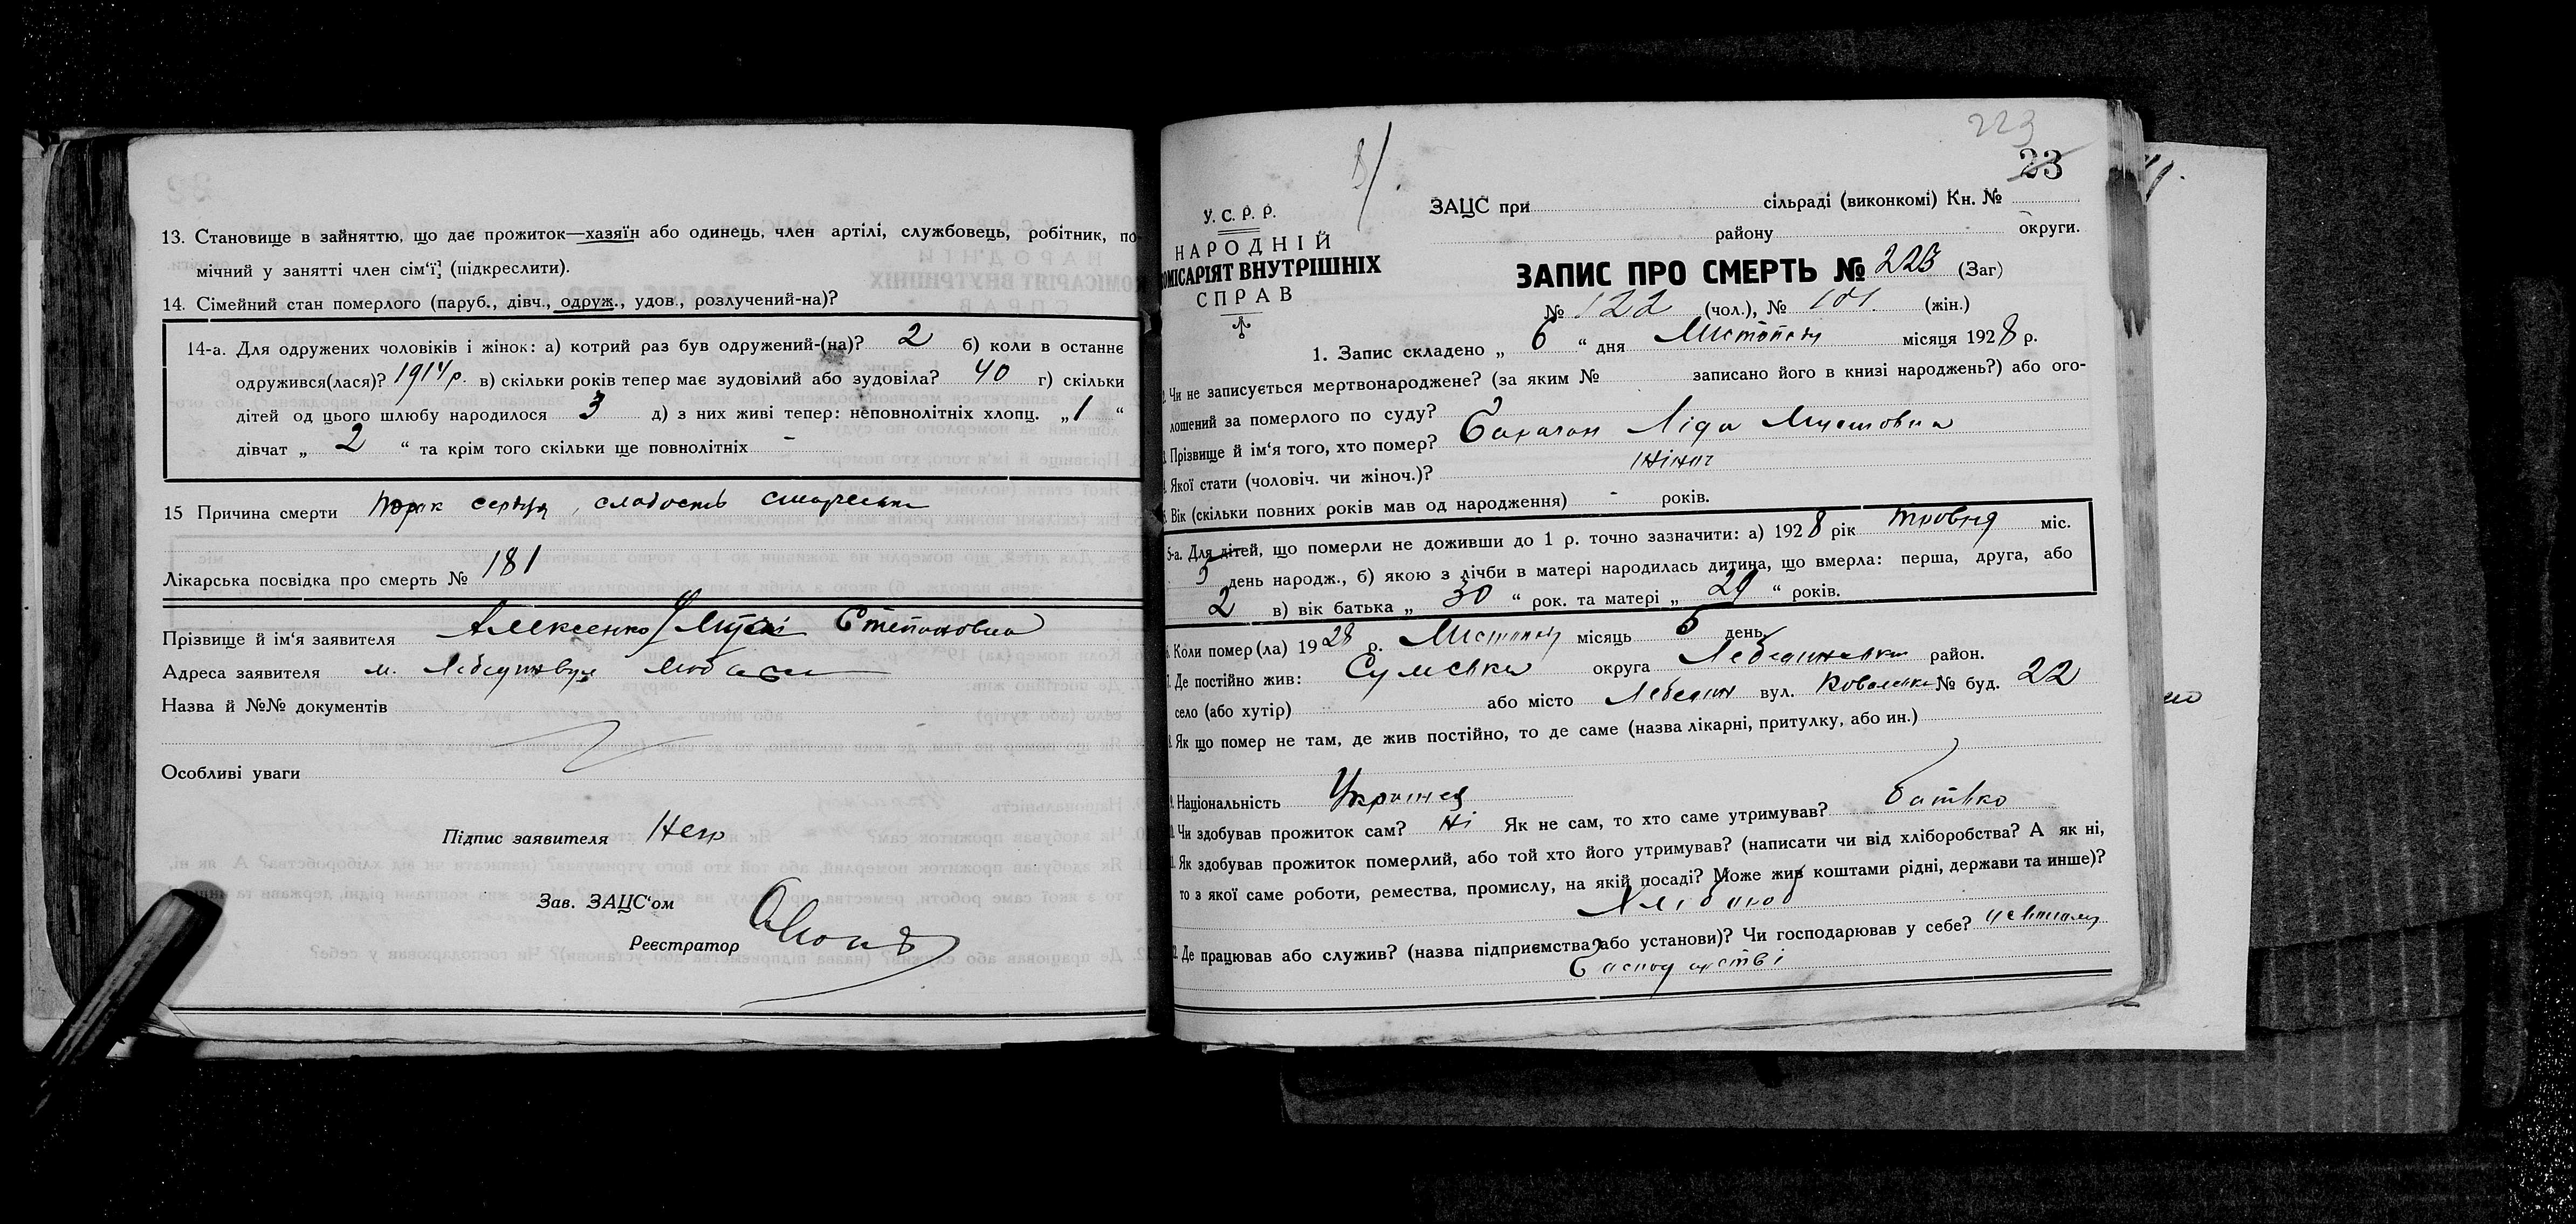 13. Становище в зайняттю, що дає прожиток—хазяїн або одинець, член артілі, службовець, робітник, по-
мічний у занятті член сім'ї, (підкреслити).
14. Сімейний стан померлого (паруб., дівч., одруж., удов., розлучений-на)?
14-а. Для одружених чоловіків і жінок: а) котрий раз був одружений-(на)? 2 б) коли в останнє
одружився(лася)? 1914 р. в) скільки років тепер має зудовілий або зудовіла? 40 г) скільки
дітей од цього шлюбу народилося 3 д) з них живі тепер: неповнолітніх хлопц. „1“
дівчат „2“ та крім того скільки ще повнолітніх -
15 Причина смерти порок сердця, слабость
Лікарська посвідка про смерть № 181
Прізвище й ім'я заявителя Алексенко Степановна
Адреса заявителя м.
Назва й №№ документів
Особливі уваги
Підпис заявителя Непр
Зав. ЗАЦС'ом
Реєстратор
223
23
У. С. Р. Р.
НАРОДНІЙ
КОМІСАРІЯТ ВНУТРІШНІХ
СПРАВ
ЗАЦС при сільраді (виконкомі) Кн. №
району округи.
ЗАПИС ПРО СМЕРТЬ № 223 (Заг)
№ 122 (чол.), № 101 (жін.)
1. Запис складено „6“ дня Листопаду місяця 1928 р.
2. Чи не записується мертвонароджене? (за яким № записано його в книзі народжень?) або ого-
лошений за померлого по суду?
3. Прізвище й ім'я того, хто помер? Ліда
4. Якої стати (чоловіч. чи жіноч.)? жіноч
5. Вік (скільки повних років мав од народження) - років.
5-а. Для дітей, що померли не доживши до 1 р. точно зазначити: а) 1928 рік травня міс.
5 день народж., б) якою з лічби в матері народилась дитина, що вмерла: перша, друга, або
2 в) вік батька „30“ рок. та матері „29“ років.
6. Коли помер(ла) 1928 р. Листопаду місяць 5 день
7. Де постійно жив: Сумська округа Лебединський район.
село (або хутір) або місто Лебедин вул. № буд. 22
8. Як що помер не там, де жив постійно, то де саме (назва лікарні, притулку, або ин.)
9. Національність Українец
10. Чи здобував прожиток сам? ні Як не сам, то хто саме утримував? батько
11. Як здобував прожиток померлий, або той хто його утримував? (написати чи від хліборобства? А як ні,
то з якої саме роботи, ремества, промислу, на якій посаді? Може жив коштами рідні, держави та инше)?
Хлібороб
12. Де працював або служив? (назва підприємства або установи)? Чи господарював у себе? у своєму
Господарстві